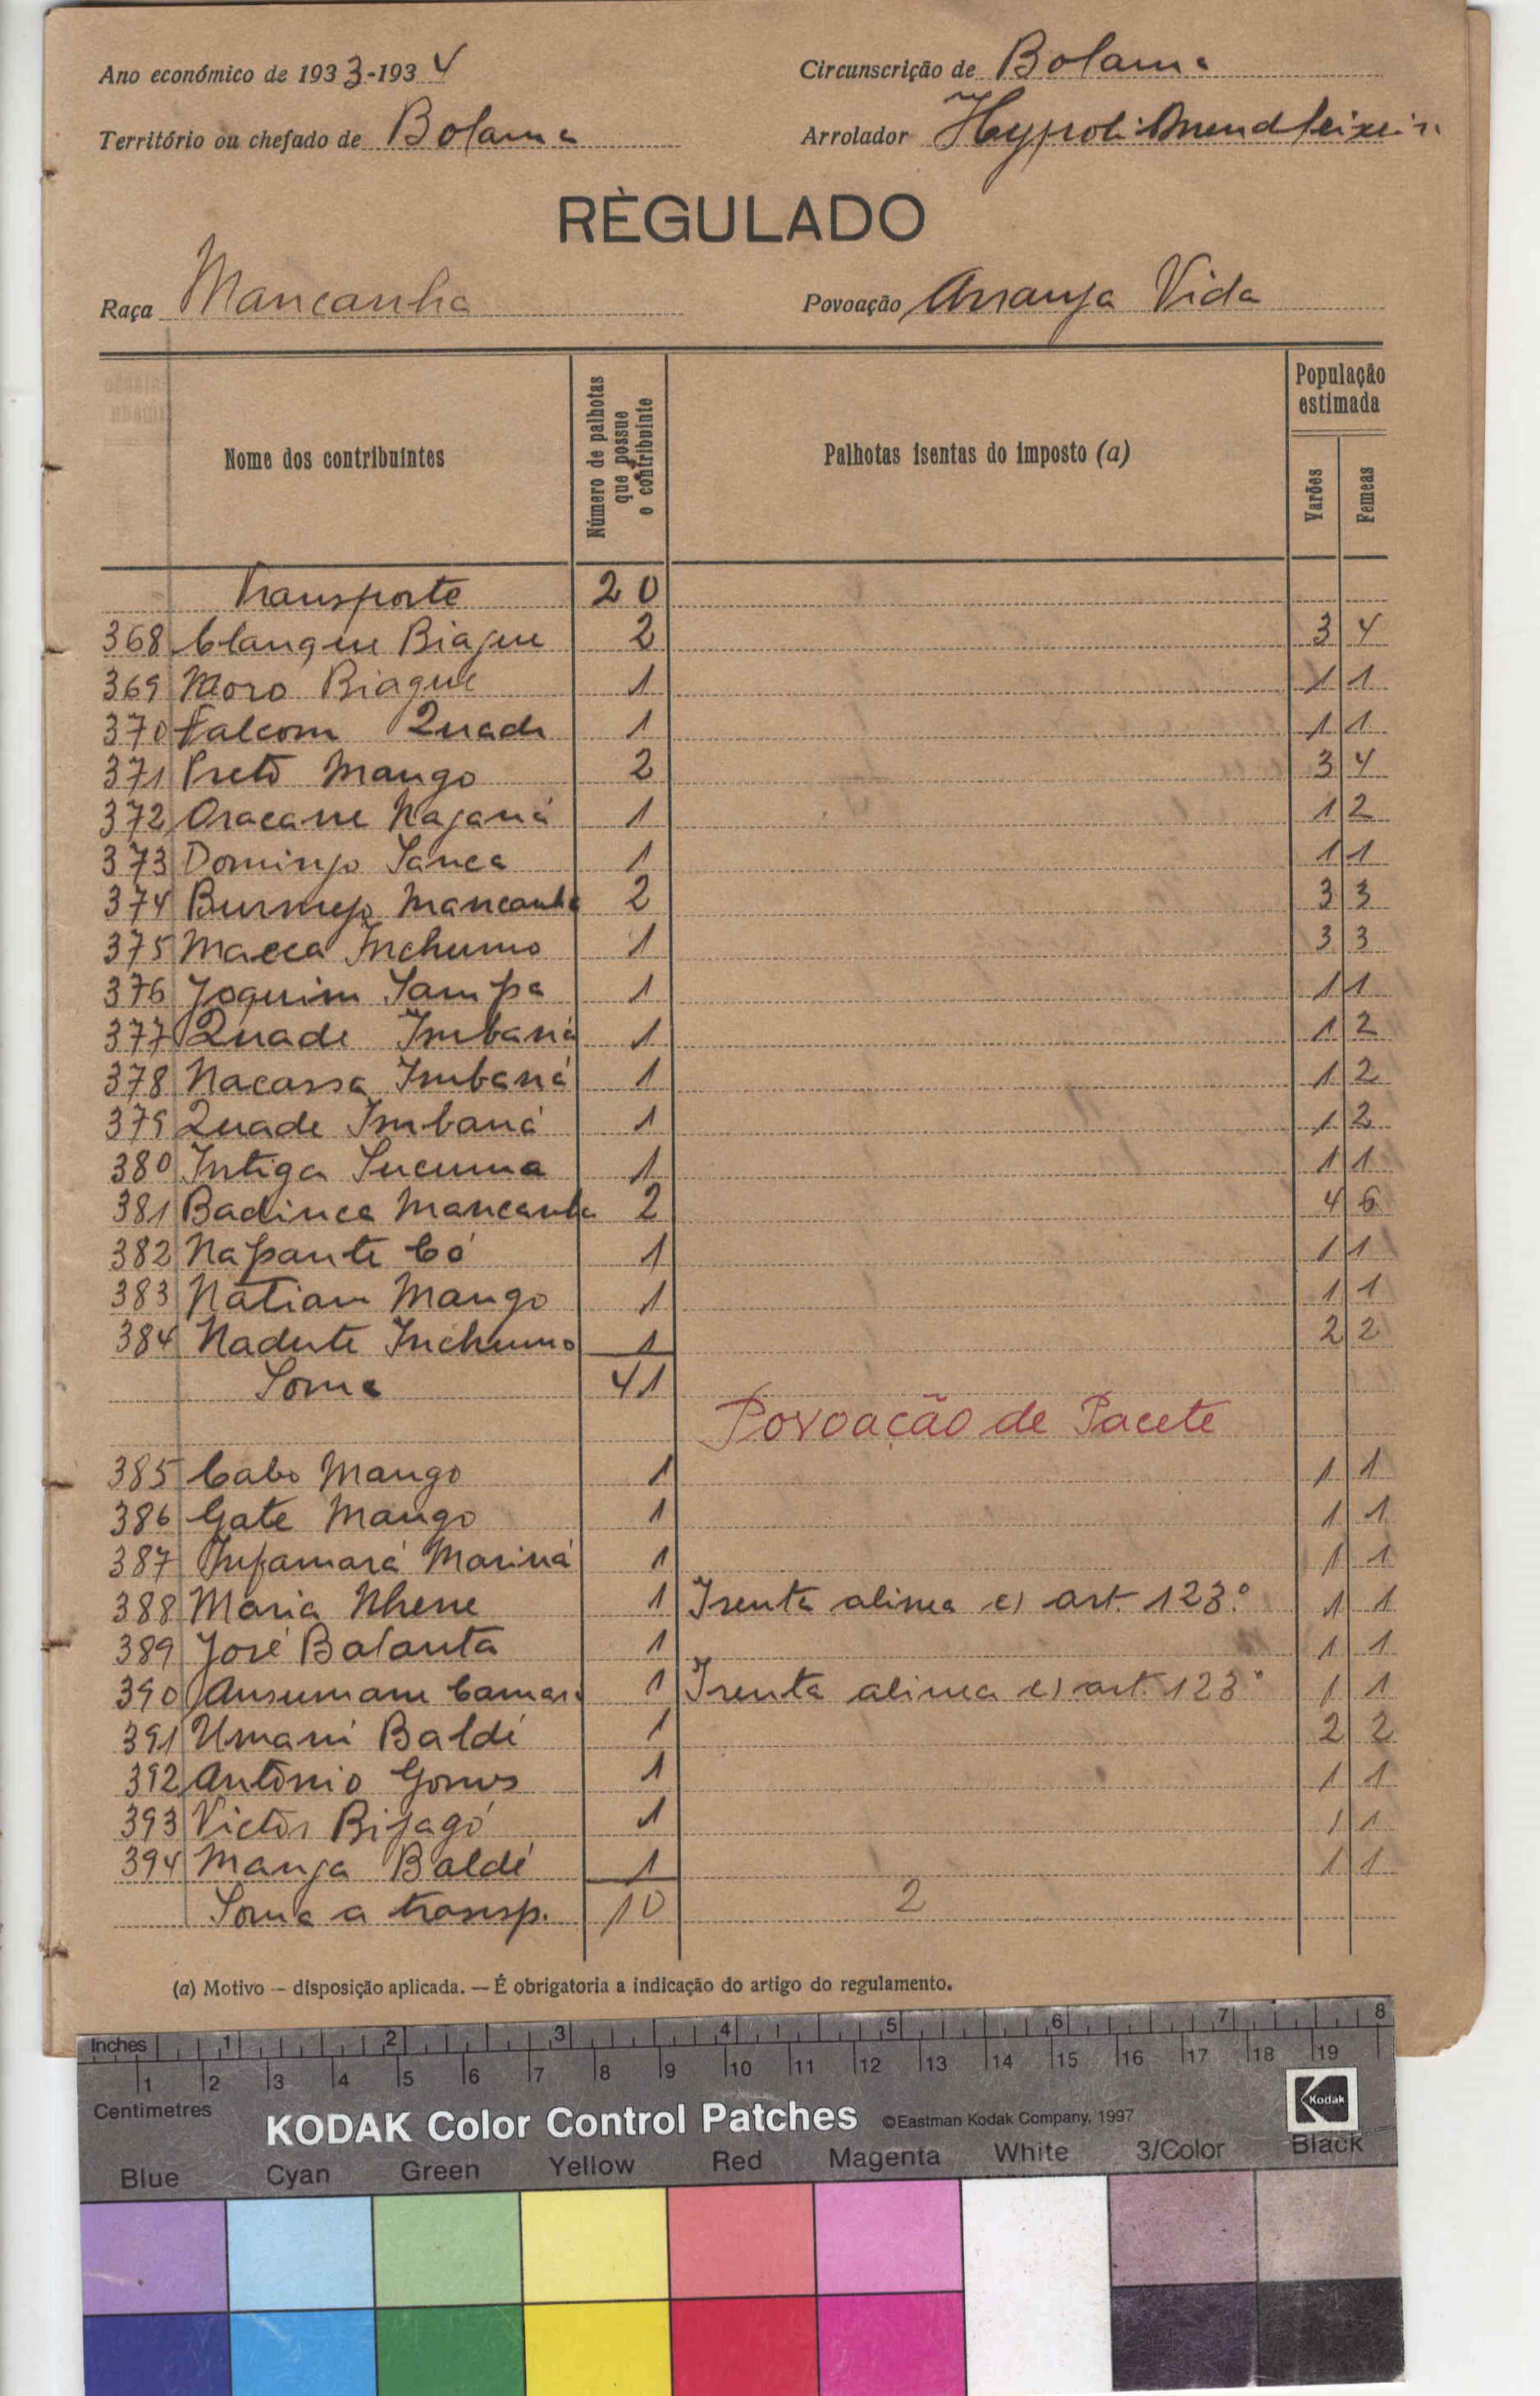 Ano económico de 1933-1934
Circunscrição de Bolama
Território ou chefado de Bolama
Arrolador
RÈGULADO
Raça Mancanha
Povoação Arranja Vida
Nome dos contribuintes
Número de palhotas que possue o contribuinte
Palhotas isentas do imposto (a)
População estimada
Varões
Femeas
Transporte 20
368 Clanque Biague 2 3 4
369 Moro Biague 1 1 1
370 Falcom Quade 1 1 1
371 Preto Mango 2 3 4
372 1 1 2
373 Domingo Sanca 1 1 1
374 Mancanha 2 3 3
375 Macca Inchumo 1 3 3
376 Joquim Sampa 1 1 1
377 Quade Imbaná 1 1 2
378 Nacassa Imbaná 1 1 2
379 Quade Imbaná 1 1 2
380 Intiga Sucuma 1 1 1
381 Badinca Mancanha 2 4 6
382 Napante Có 1 1 1
383 Natiam Mango 1 1 1
384 Nadute Inchumo 1 2 2
Soma 41
Povoação de Pacete
385 Cabo Mango 1 1 1
386 Gate Mango 1 1 1
387 Infamará Mariná 1 1 1
388 Maria Nhene 1 Isenta alinea c) art. 123.º 1 1
389 José Balanta 1 1 1
390 Ansumane Camará 1 Isenta alinea c) art. 123º 1 1
391 Umani Baldé 1 2 2
392 António Gomes 1 1 1
393 Victor Bijagó 1 1 1
394 Manja Baldé 1 1 1
Soma a transp. 10 2
(a) Motivo — disposição aplicada. — É obrigatoria a indicação do artigo do regulamento.
Inches 1 2 3 4 5 6 7 8
1 2 3 4 5 6 7 8 9 10 11 12 13 14 15 16 17 18 19
Centimetres
KODAK Color Control Patches ©Eastman Kodak Company, 1997
Kodak
Blue Cyan Green Yellow Red Magenta White 3/Color Black